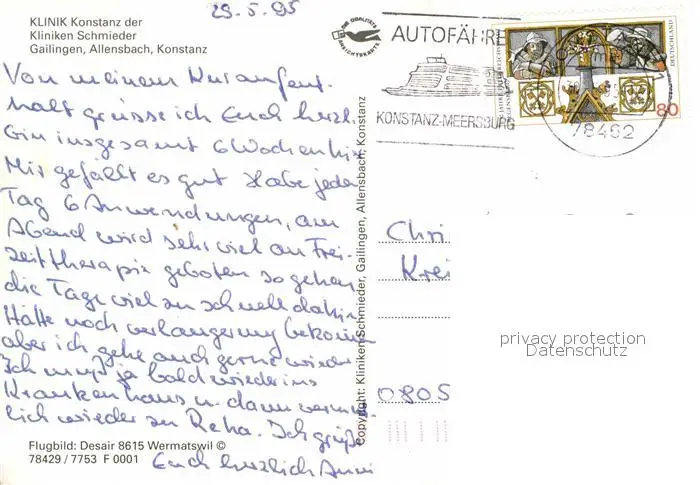 29.5.95
KLINIK Konstanz der
Kliniken Schmieder
Gailingen, Allensbach, Konstanz
Von meinem Kuraufent-
halt grüsse ich Euch herzl.
Bin insgesamt 6 Wochen hier
Mir gefällt es gut Habe jeden
Tag 6 Anwendungen, am
Abend wird sehr viel an Frei-
zeittherapie geboten so gehen
die Tage viel zu schnell dahin
Hätte noch verlängerung bekommen
aber ich gehe auch gerne wieder
Ich muß ja bald wieder ins
Krankenhaus u. dann vermut-
lich wieder zu Reha. Ich grüße
Euch herzlich Anni
Flugbild: Desair 8615 Wermatswil ©
78429 / 7753 F 0001
Copyright: Kliniken Schmieder, Gailingen, Allensbach, Konstanz
DIE QUALITÄTS
ANSICHTSKARTE
AUTOFÄHRE
KONSTANZ-MEERSBURG
78462
DEUTSCHLAND
80
Chri
Krei
0805
privacy protection
Datenschutz